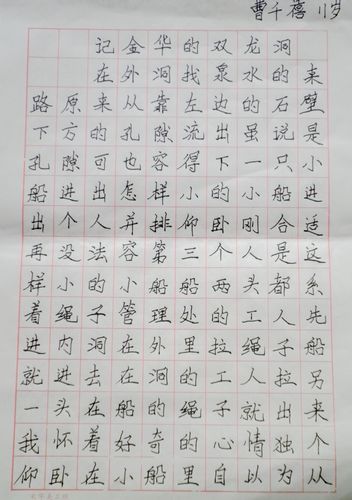 曹千蓓 11岁
记金华的双龙洞
在外洞找泉水的来
路原来从靠左边的石壁
下方的孔隙流出虽说是
孔隙可也容得下一只小
船进出怎样小的小船进
出个人并排仰卧刚合适
再没法容第三个人是这
样小的小船船两头都系
着绳子管理处的工人先
进内洞在外里拉绳子船
就进去在洞的工人拉另
一头在船的绳子就出来
我怀着好奇的心情独个
仰卧在小船里自以为从